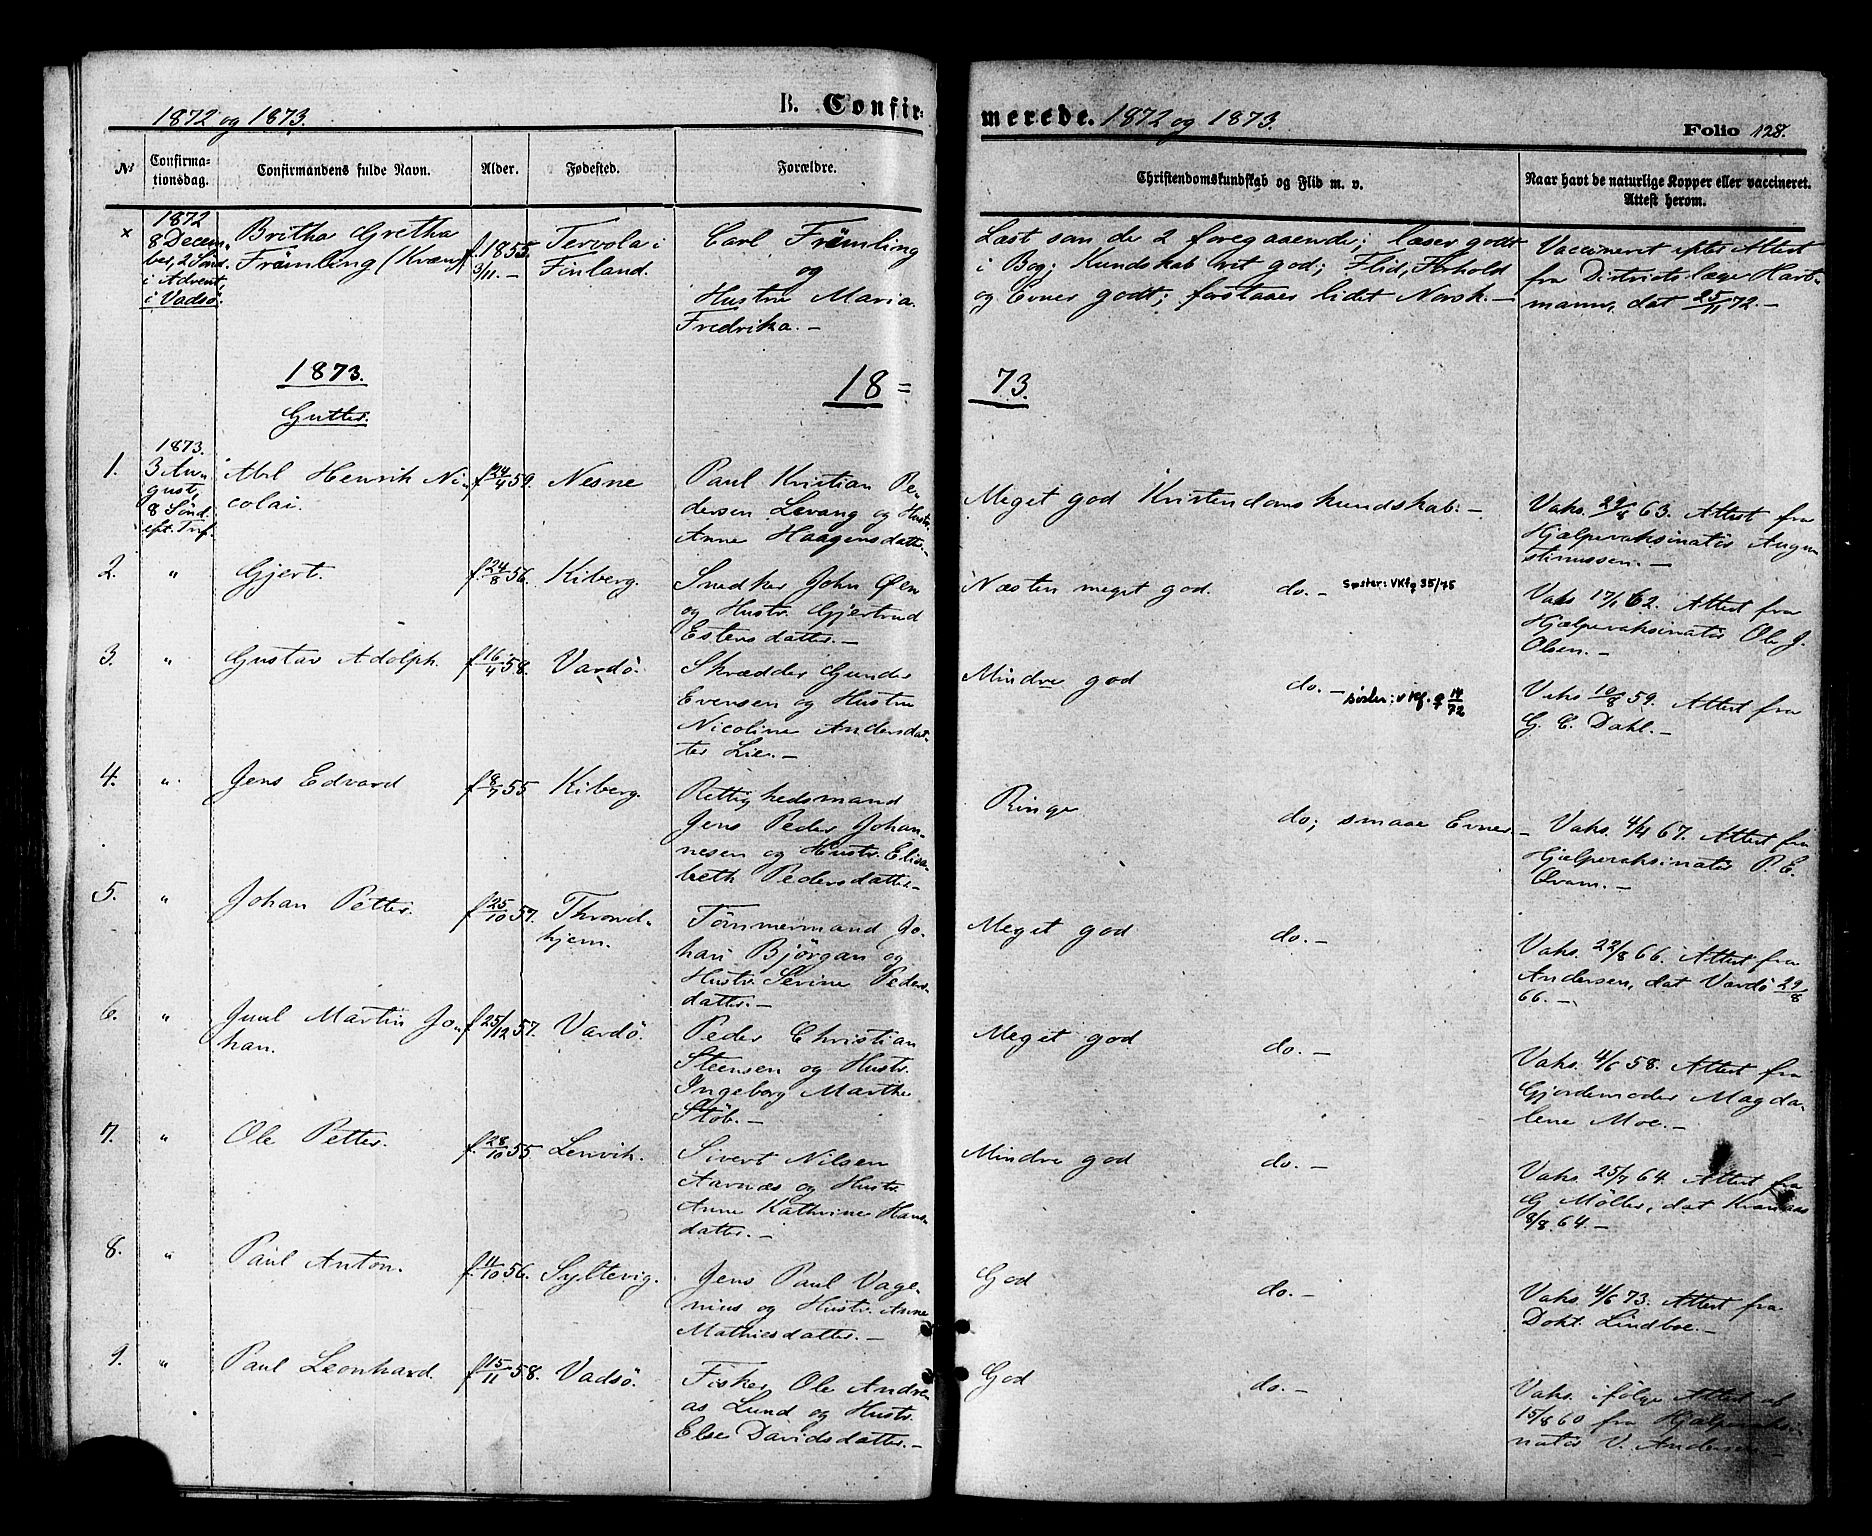 1872 og 1873.
B. Confir-
merede. 1872 og 1873.
Folio 128.
No
Confirma-
tionsdag.
Confirmandens fulde Navn.
Alder.
Fødested.
Forældre.
Christendomskundskab og Flid m. v.
Naar havt de naturlige Kopper eller vaccineret.
Attest herom.
×
1872
8 Decem-
ber, 2 Sønd.
i Advent,
i Vadsö.
Britha Gretha
Främling (Kvæn)
f. 1855
9/11. –
Tervola i
Finland.
Carl Främling
og
Hustru Maria
Fredrika. –
Læst som de 2 foregaaende; læser godt
i Bog; Kundskab
god; Flid, Forhold
og Evner godt; forstaaer lidet Norsk. –
Vaccineret efter Attest
fra Districtslæge Hart-
mann, dat 25/11 72. –
1873.
18 =
73.
Gutter.
1.
1873.
3 Au-
gust,
8 Sönd.
eft. Trf.
Abel Henrik Ni-
colai.
f 24/4 59.
Nesne
Paul Kristian Pe-
dersen Levang og Hustr.
Anne Haagensdatter. –
Meget god Kristendomskundskab. –
Vaks. 29/8 63. Attest fra
Hjælpevaksinatör Augu-
stinussen. –
2.
"
Gjert.
f. 24/8 56.
Kiberg.
Snedker John Öien
og Hustr. Gjertrud
Estensdatter. –
Næsten meget god. do. –
Søster: VKfq 35/75
Vaks 17/1 62. Attest fra
Hjælpevaksinatör Ole J.
Olsen. –
3.
"
Gustav Adolph.
f 16/4 58.
Vardö.
Skrædder Gunder
Evensen og Hustru
Nicoline Andersdat-
ter Lie. –
Mindre god do. –
Søster: VKf. q 14/72
Vaks 10/8 59. Attest fra
G. E. Dahl. –
4.
"
Jens Edvard
f 8/7 55
Kiberg.
Rettighedsmand
Jens Peder Johan-
nesen og Hustr. Elisa-
beth Pedersdatter –
Ringe do; smaae Evner –
Vaks. 4/4 67. Attest fra
Hjælpevaksinatör P. E.
Qvam. –
5.
"
Johan Petter.
f 25/10 57.
Thrond-
hjem.
Tömmermand Jo-
han Björgan og
Hustr. Serine Peders-
datter. –
Meget god do. –
Vaks. 22/8 66. Attest fra
Andersen, dat Vardö 29/8
66. –
6.
"
Juul Martin Jo-
han.
f 25/12 57.
Vardö.
Peder Christian
Steensen og Hustr.
Ingeborg Marthe
Stöb. –
Meget god do. –
Vaks. 4/6 58. Attest fra
Gjordemoder Magda-
lene Moe. –
7.
"
Ole Petter.
f. 28/10 55
Lenvik.
Sivert Nilsen
Aarnæs og Hustr.
Anne Kathrine Hans-
datter. –
Mindre god do. –
Vaks. 25/7 64. Attest fra
G Möller, dat
8/8. 64. –
8.
"
Paul Anton.
f. 4/10 56.
Syltevig.
Jens Paul Vage-
nius og Hustr. Anne
Mathiesdatter. –
God do. –
Vaks. 4/6 73. Attest fra
Dokt. Lindboe. –
9.
"
Paul Leonhard.
f 15/11 58.
Vadsö.
Fisker Ole Andre-
as Lund og Hustr.
Else Davidsdatter. –
God do. –
Vaks. ifölge Attest af
15/8 60 fra Hjælpevaksi-
natör V. Andersen –